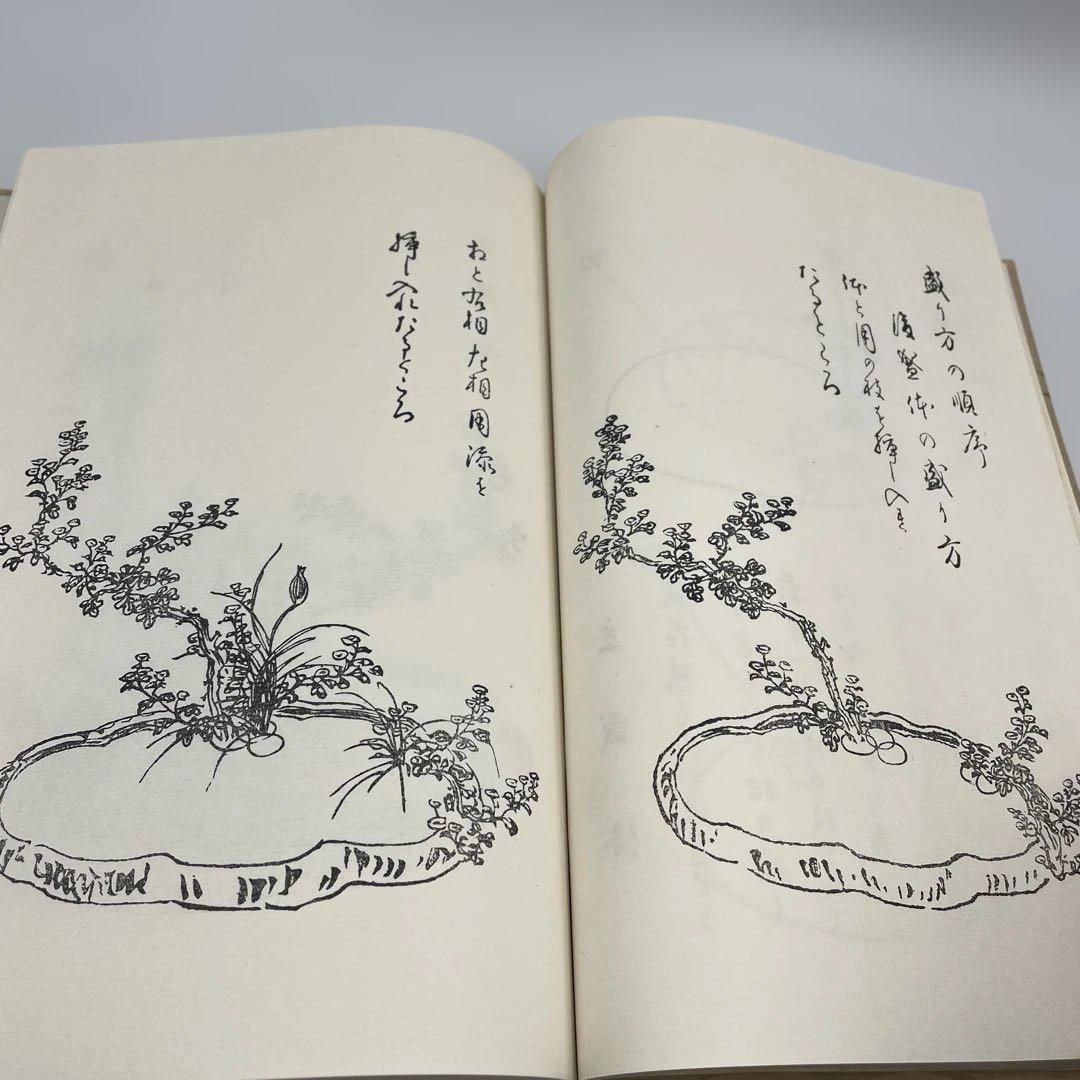 盛り方の順序
盤体の盛り方
体と用の枝を挿し入れ
たるところ
右相左相用添を
挿し入れたるところ